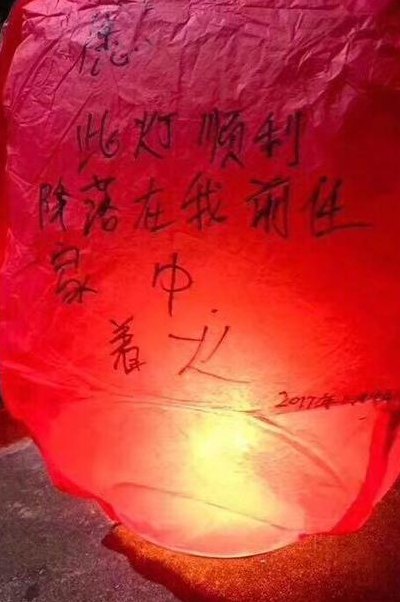 此灯顺利
除落在我前任
家中
着火
2017年